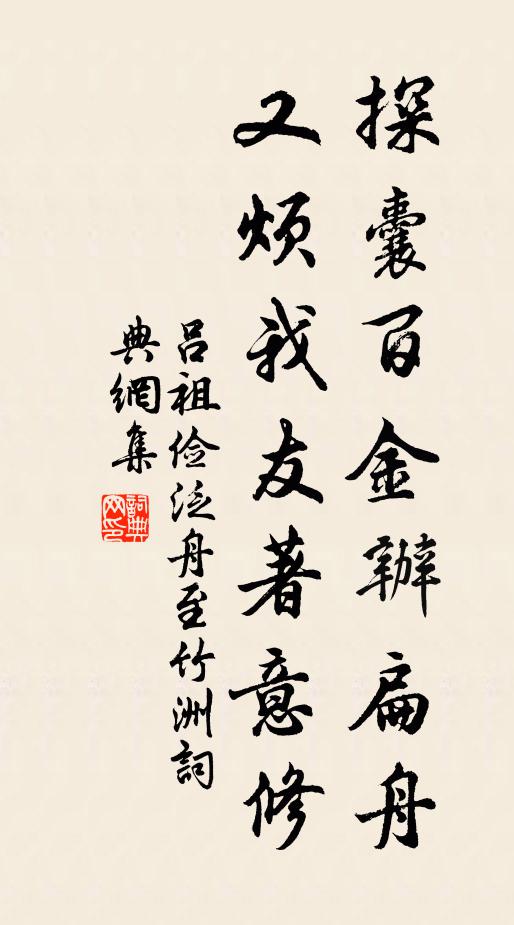 探囊百金辦扁舟
又煩我友著意修
呂祖儉泛舟至竹洲詞
典網集
詞典網印